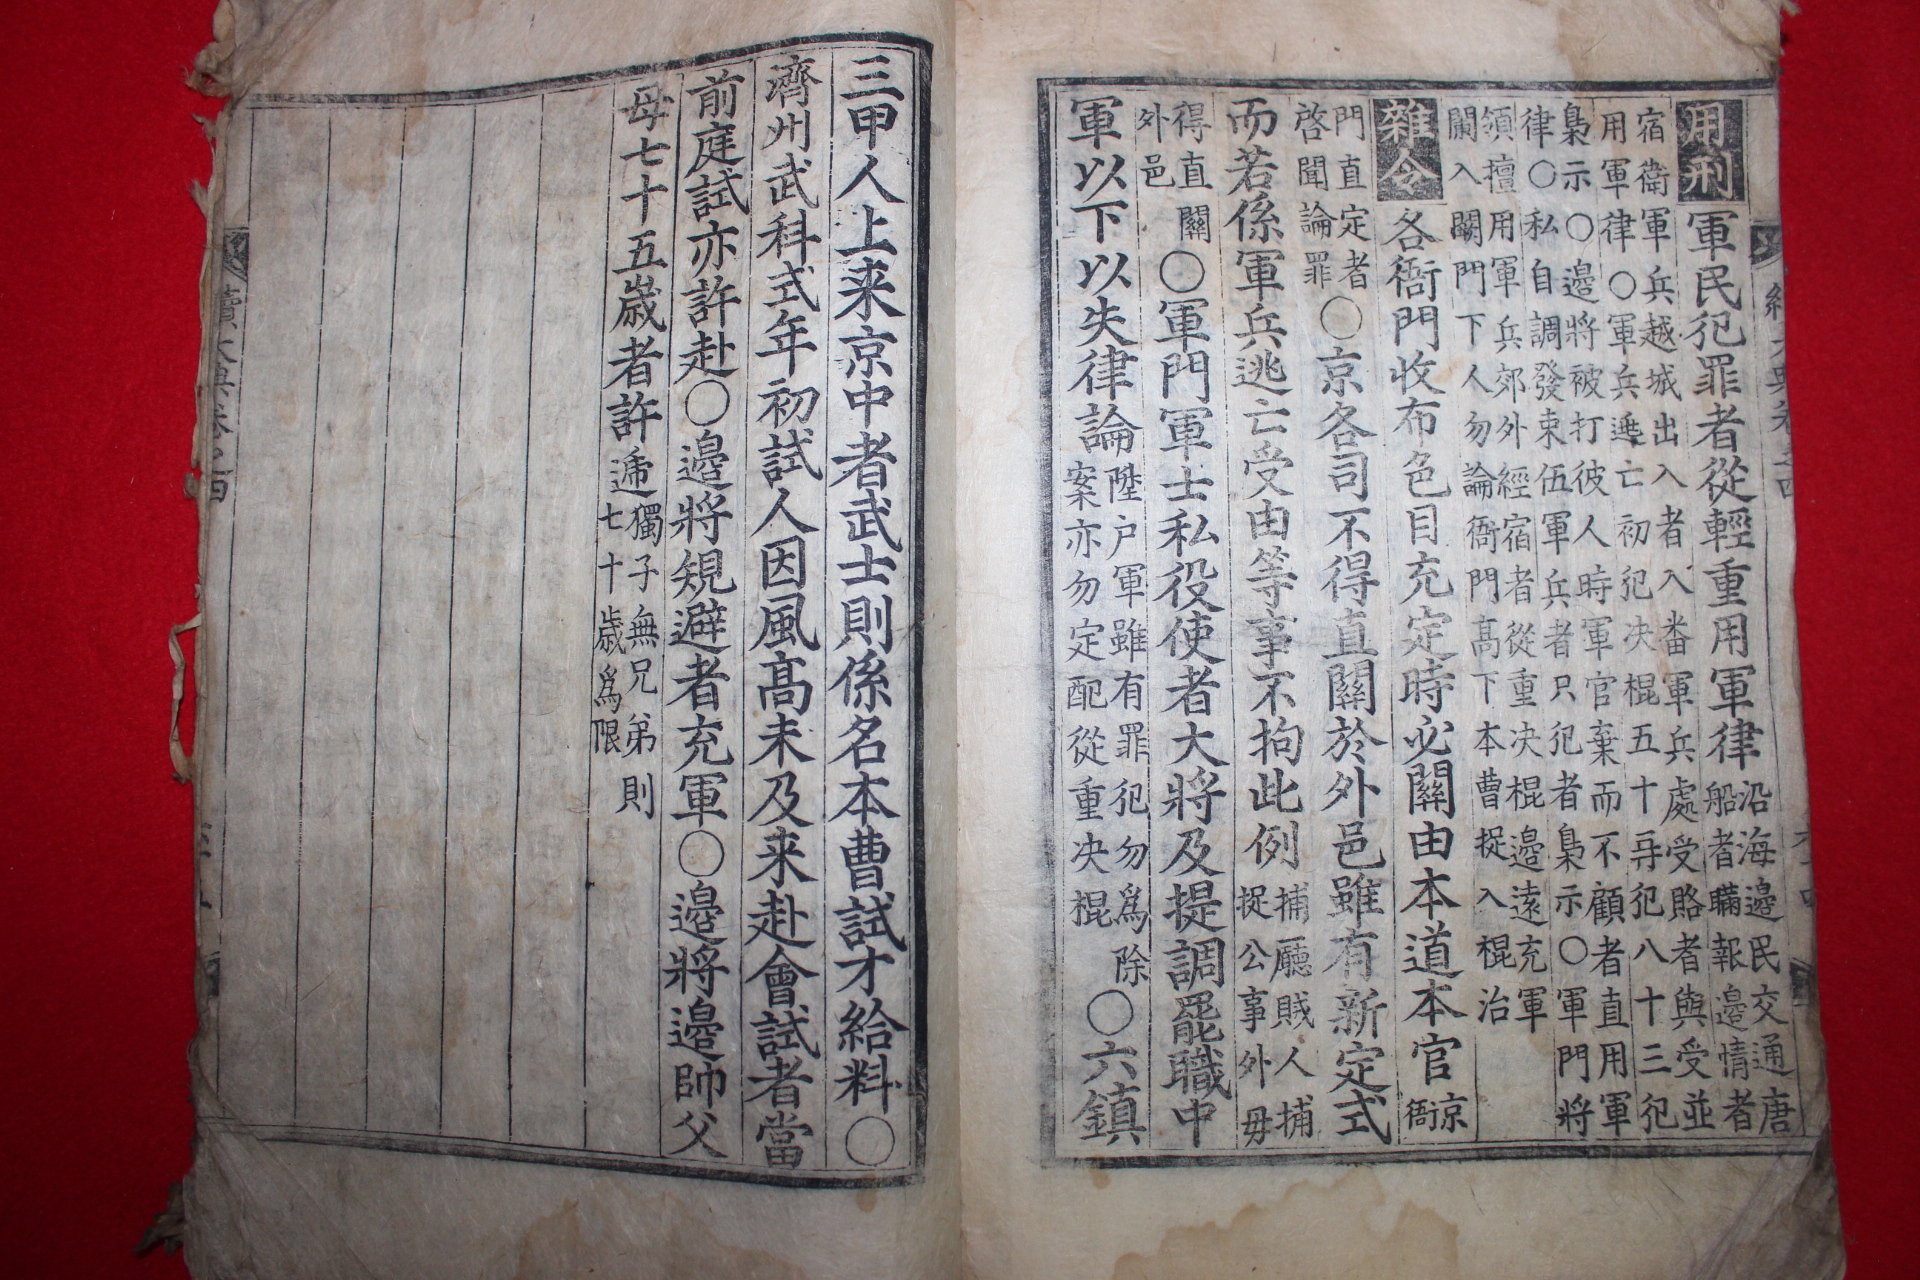 用刑 軍民犯罪者從輕重用軍律 沿海邊民交通唐
船者瞞報邊情者
宿衛軍兵越城出入者入番軍兵處受賂者與受並
用軍律○軍兵逃亡初犯决棍五十再犯八十三犯
梟示○邊將被打彼人時軍官棄而不顧者直用軍
律○私自調發束伍軍兵者只犯者梟示○軍門將
領擅用軍兵郊外經宿者從重决棍邊遠充軍
闌入闕門下人勿論衙門高下本曹捉入棍治
雜令 各衙門收布色目充定時必關由本道本官 京
衙
門直定者
啓聞論罪 ○京各司不得直關於外邑雖有新定式
而若係軍兵逃亡受由等事不拘此例 捕廳賊人捕
捉公事外毋
得直關
外邑 ○軍門軍士私役使者大將及提調罷職中
軍以下以失律論 陞户軍雖有罪犯勿爲除
案亦勿定配從重决棍 ○六鎮
三甲人上来京中者武士則係名本曹試才給料○
濟州武科式年初試人因風高未及来赴會試者當
前庭試亦許赴○邊將規避者充軍○邊將邊帥父
母七十五歲者許遞 獨子無兄弟則
七十歲爲限
續大典卷之四